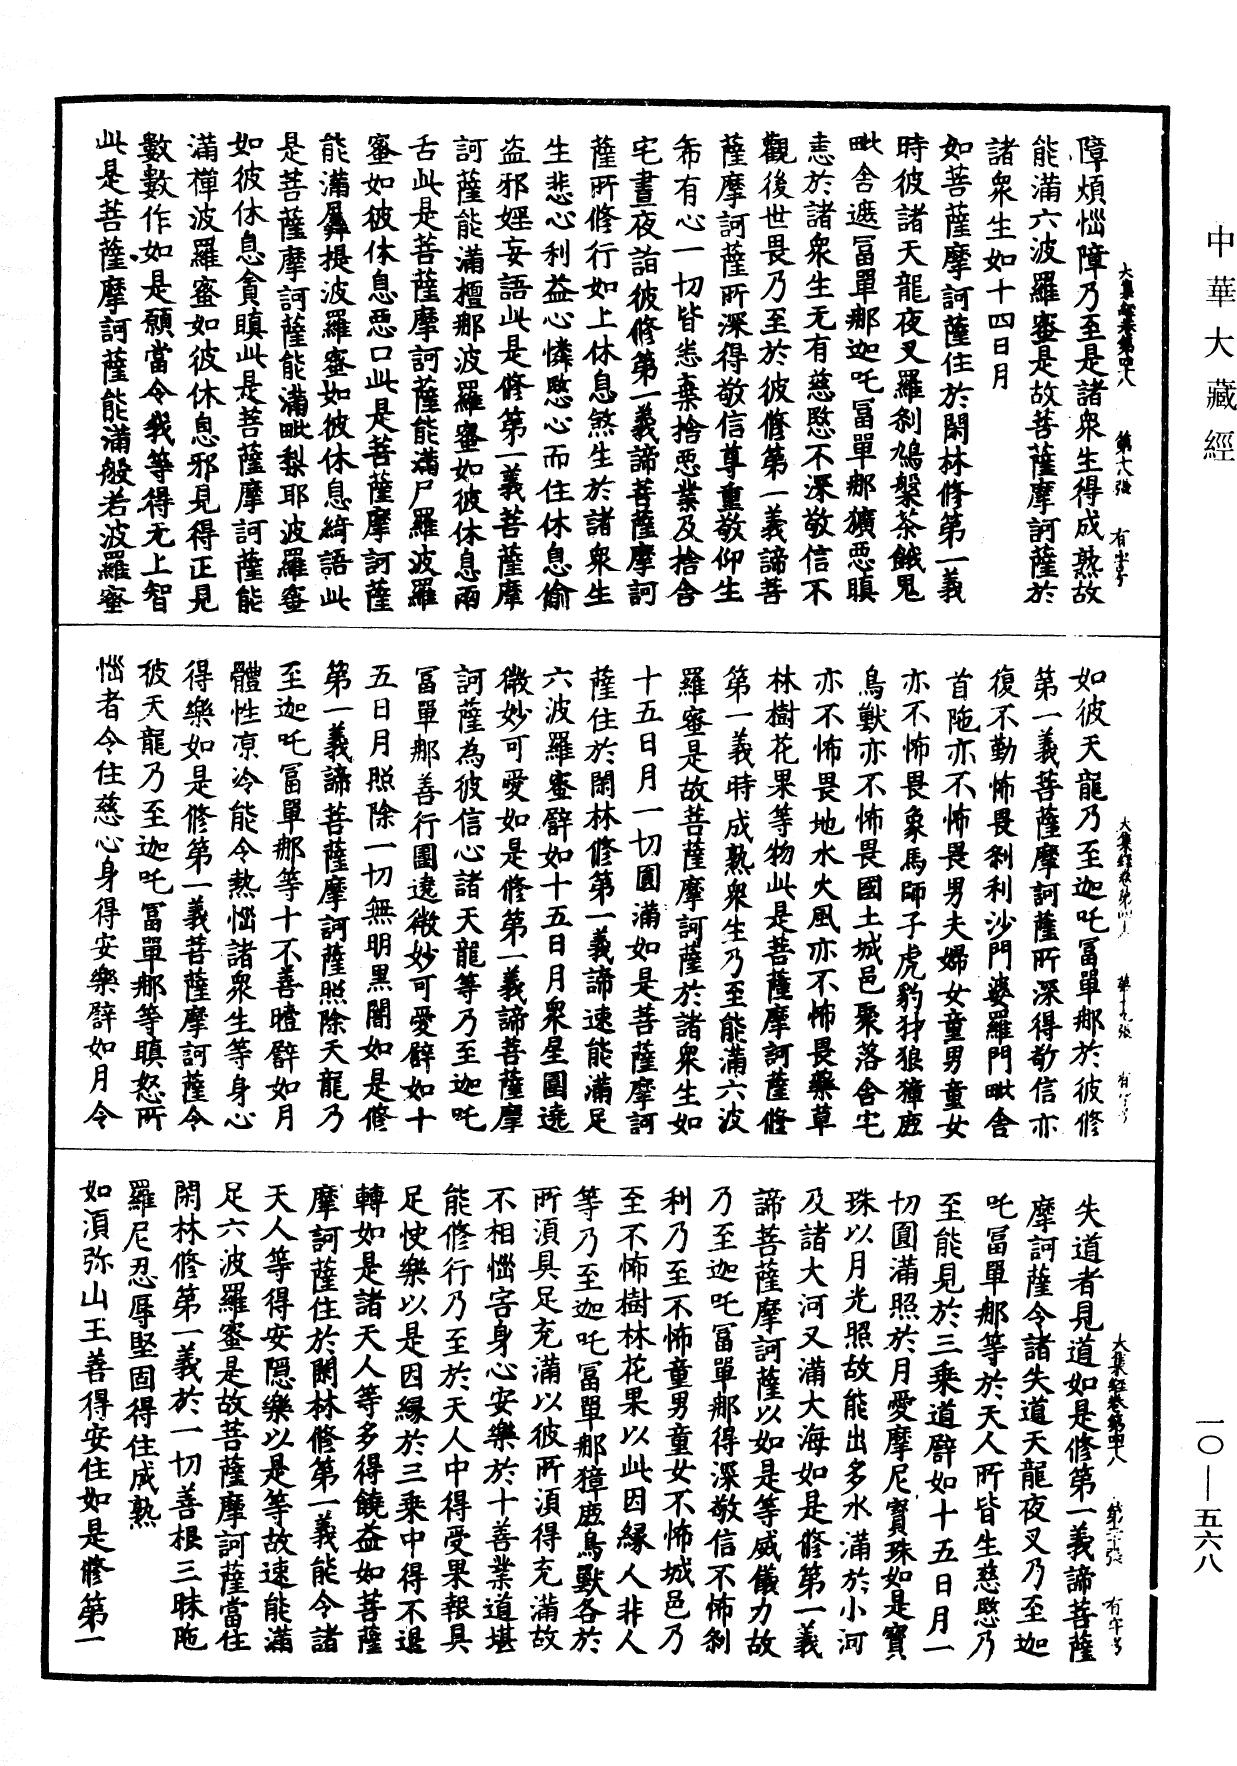 中華大藏經
大集經卷第四八 第十八張 有字号
障煩惱障乃至是諸衆生得成熟故
能滿六波羅蜜是故菩薩摩訶薩於
諸衆生如十四日月
如菩薩摩訶薩住於閑林修第一義
時彼諸天龍夜叉羅刹鳩槃茶餓鬼
毗舍遮冨單那迦吒冨單那獷惡瞋
恚於諸衆生无有慈愍不深敬信不
觀後世畏乃至於彼修第一義諦菩
薩摩訶薩所深得敬信尊重敬仰生
希有心一切皆悉棄捨惡業及捨舍
宅晝夜詣彼修第一義諦菩薩摩訶
薩所修行如上休息煞生於諸衆生
生悲心利益心憐愍心而住休息偷
盜邪婬妄語此是修第一義菩薩摩
訶薩能滿檀那波羅蜜如彼休息兩
舌此是菩薩摩訶薩能滿尸羅波羅
蜜如彼休息惡口此是菩薩摩訶薩
能滿羼提波羅蜜如彼休息綺語此
是菩薩摩訶薩能滿毗梨耶波羅蜜
如彼休息貪瞋此是菩薩摩訶薩能
滿禪波羅蜜如彼休息邪見得正見
數數作如是願當令我等得无上智
此是菩薩摩訶薩能滿般若波羅蜜
大集經卷第四八 第十九張 有字号
如彼天龍乃至迦吒冨單那於彼修
第一義菩薩摩訶薩所深得敬信亦
復不勤怖畏刹利沙門婆羅門毗舍
首陁亦不怖畏男夫婦女童男童女
亦不怖畏象馬師子虎豹犲狼獐鹿
鳥獸亦不怖畏國土城邑聚落舍宅
亦不怖畏地水火風亦不怖畏藥草
林樹花果等物此是菩薩摩訶薩修
第一義時成熟衆生乃至能滿六波
羅蜜是故菩薩摩訶薩於諸衆生如
十五日月一切圓滿如是菩薩摩訶
薩住於閑林修第一義諦速能滿足
六波羅蜜譬如十五日月衆星圍遶
微妙可愛如是修第一義諦菩薩摩
訶薩為彼信心諸天龍等乃至迦吒
冨單那善行圍遶微妙可愛譬如十
五日月照除一切無明黑闇如是修
第一義諦菩薩摩訶薩照除天龍乃
至迦吒冨單那等十不善曀譬如月
體性凉冷能令熱惱諸衆生等身心
得樂如是修第一義菩薩摩訶薩令
彼天龍乃至迦吒冨單那等瞋怒所
惱者令住慈心身得安樂譬如月令
大集經卷第四八 第二十張 有字号
失道者見道如是修第一義諦菩薩
摩訶薩令諸失道天龍夜叉乃至迦
吒冨單那等於天人所皆生慈愍乃
至能見於三乘道譬如十五日月一
切圓滿照於月愛摩尼寶珠如是寶
珠以月光照故能出多水滿於小河
及諸大河又滿大海如是修第一義
諦菩薩摩訶薩以如是等威儀力故
乃至迦吒冨單那得深敬信不怖刹
利乃至不怖童男童女不怖城邑乃
至不怖樹林花果以此因縁人非人
等乃至迦吒冨單那獐鹿鳥獸各於
所湏具足充滿以彼所湏得充滿故
不相惱害身心安樂於十善業道堪
能修行乃至於天人中得受果報具
足快樂以是因縁於三乘中得不退
轉如是諸天人等多得饒益如菩薩
摩訶薩住於閑林修第一義能令諸
天人等得安隱樂以是等故速能滿
足六波羅蜜是故菩薩摩訶薩當住
閑林修第一義於一切善根三昧陁
羅尼忍辱堅固得住成熟
如湏弥山王善得安住如是修第一
一〇—五六八